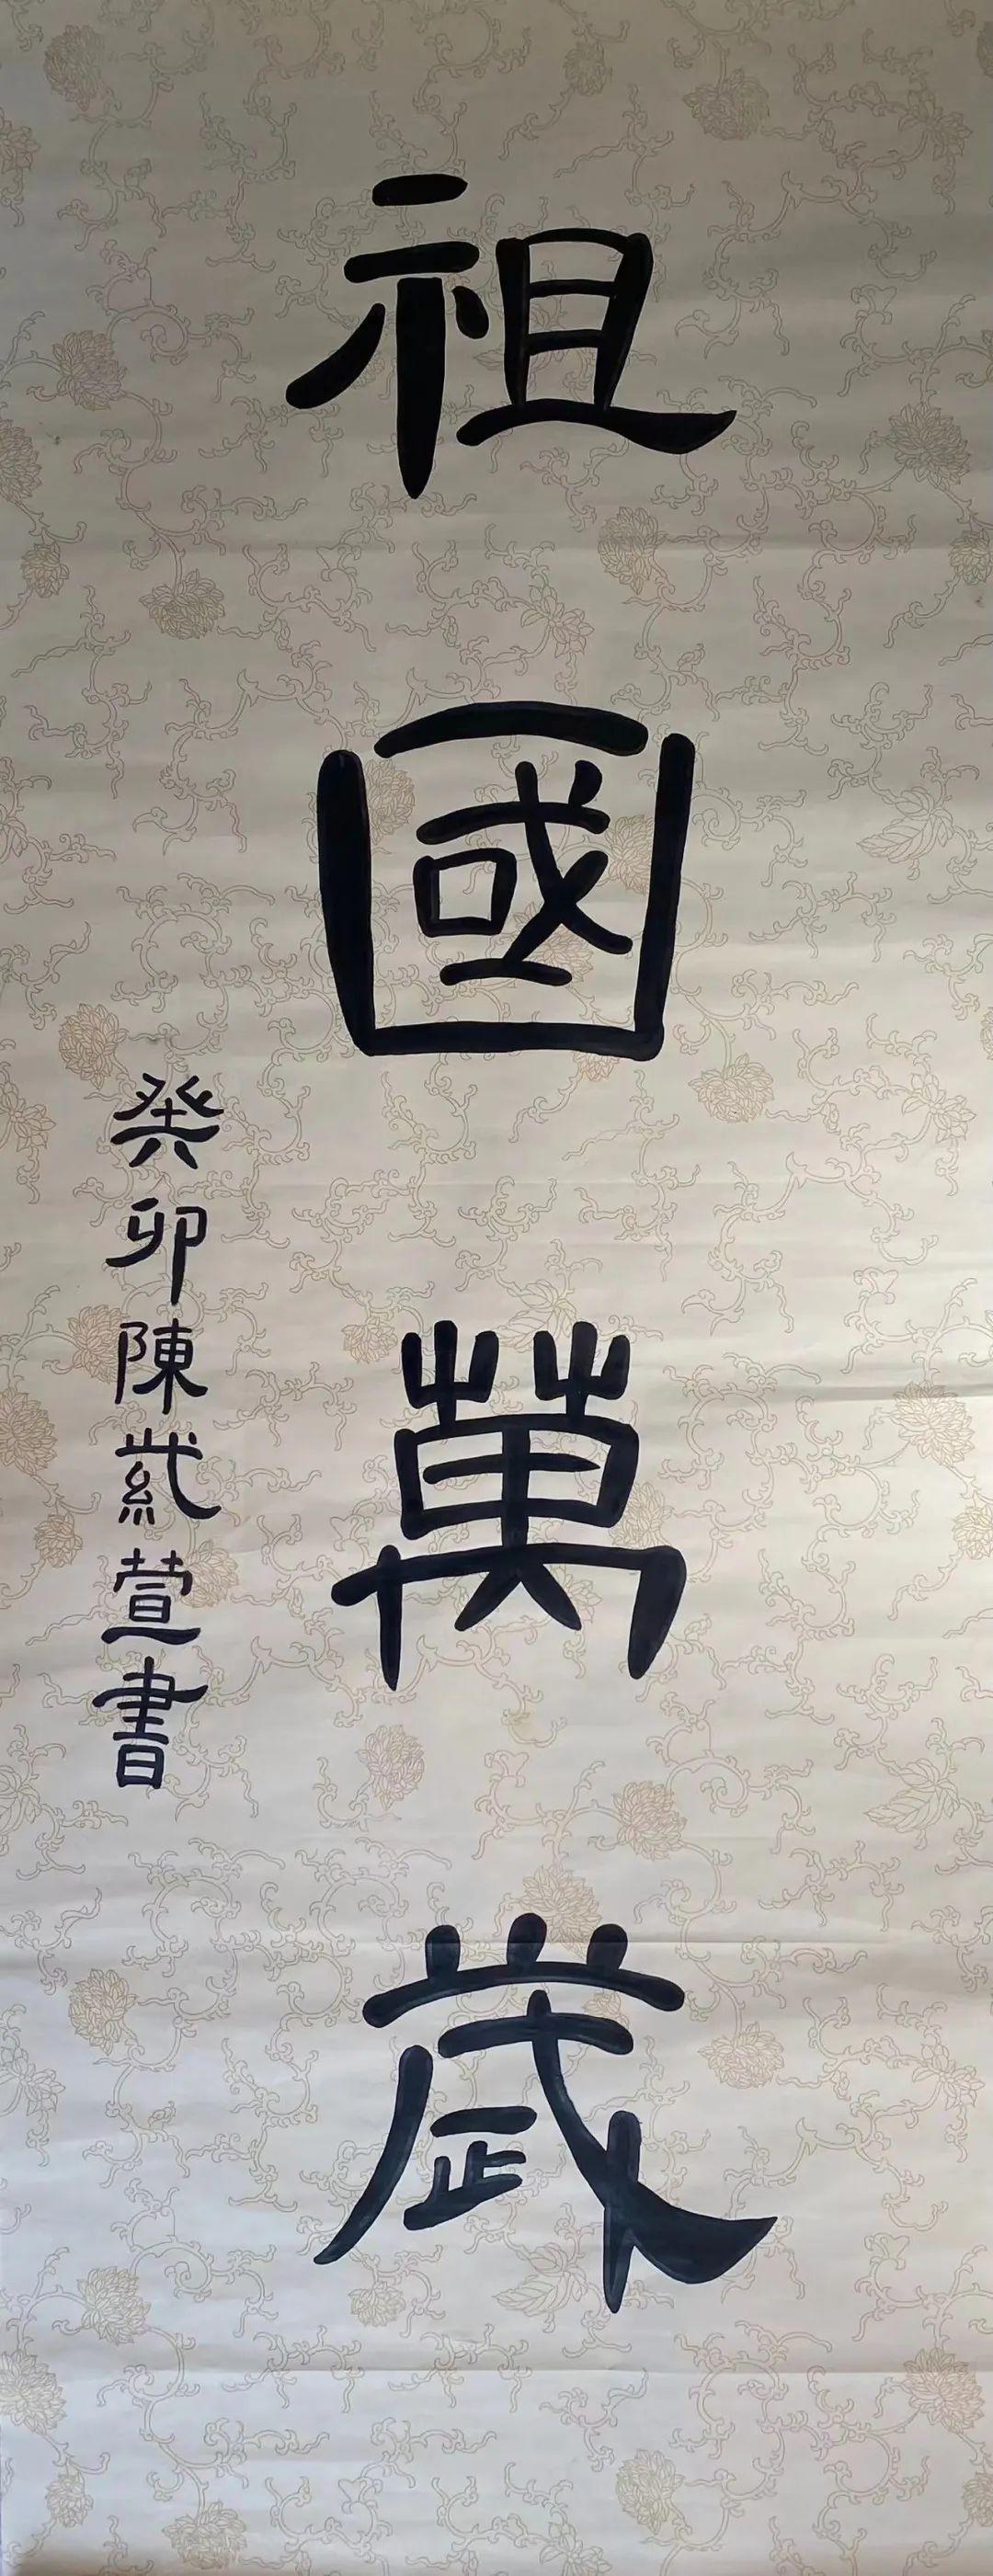 祖國萬歲
癸卯陳萱書